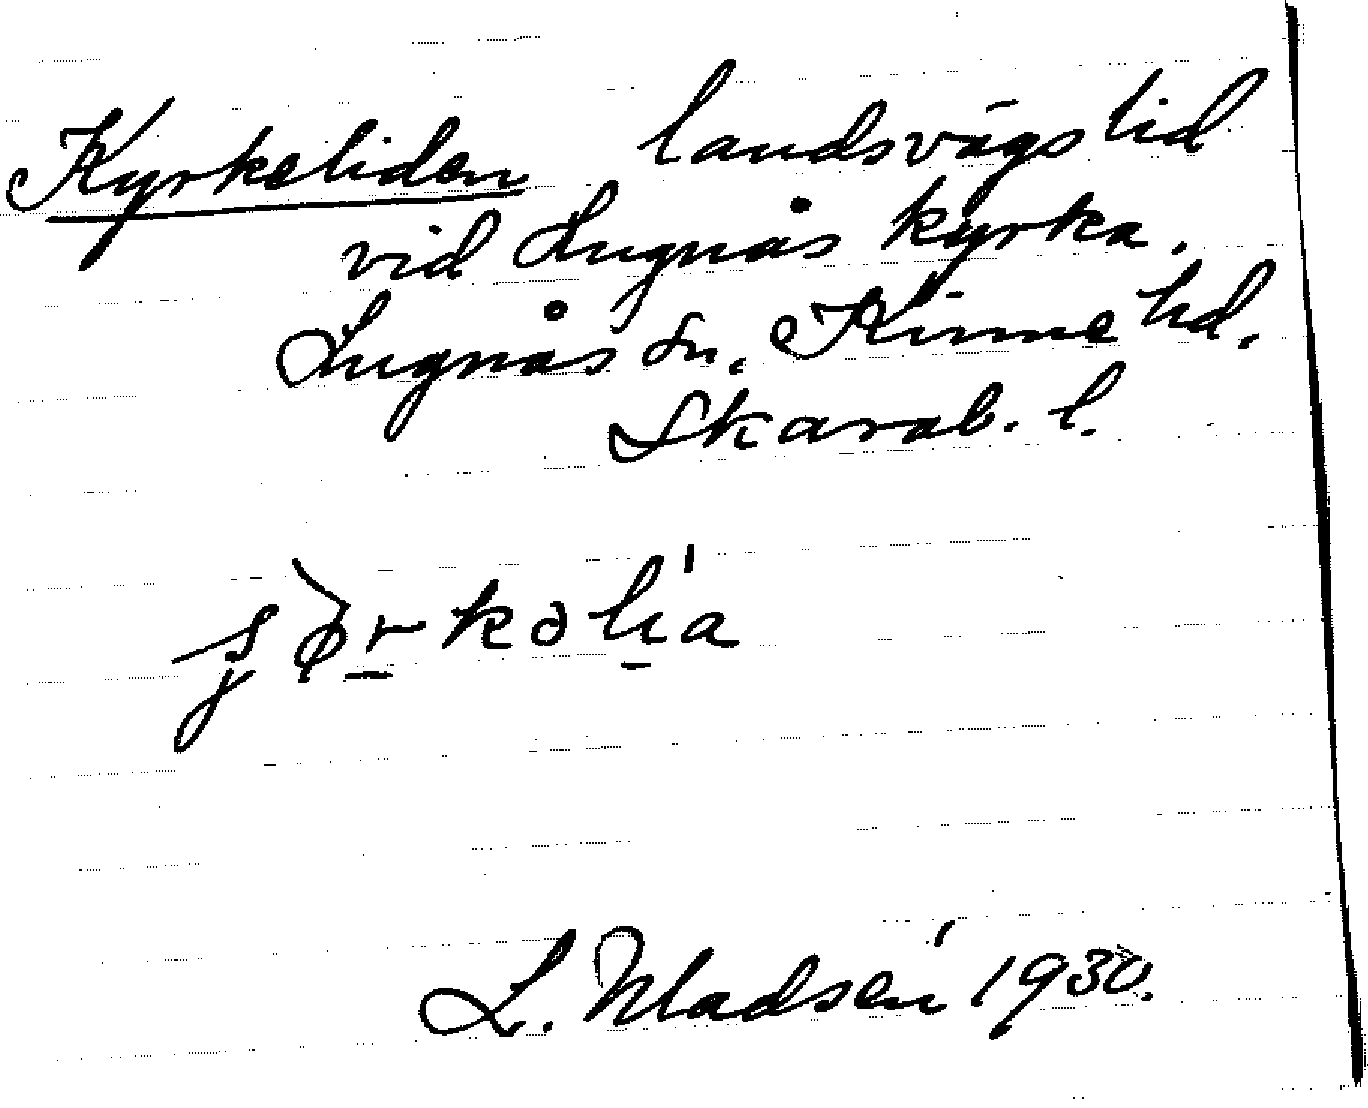 Kyrkeliden, landsvägslid
vid Lugnås kyrka,
Lugnås sn, Kinne hd.
Skarab. l.
L. Madsén 1930.